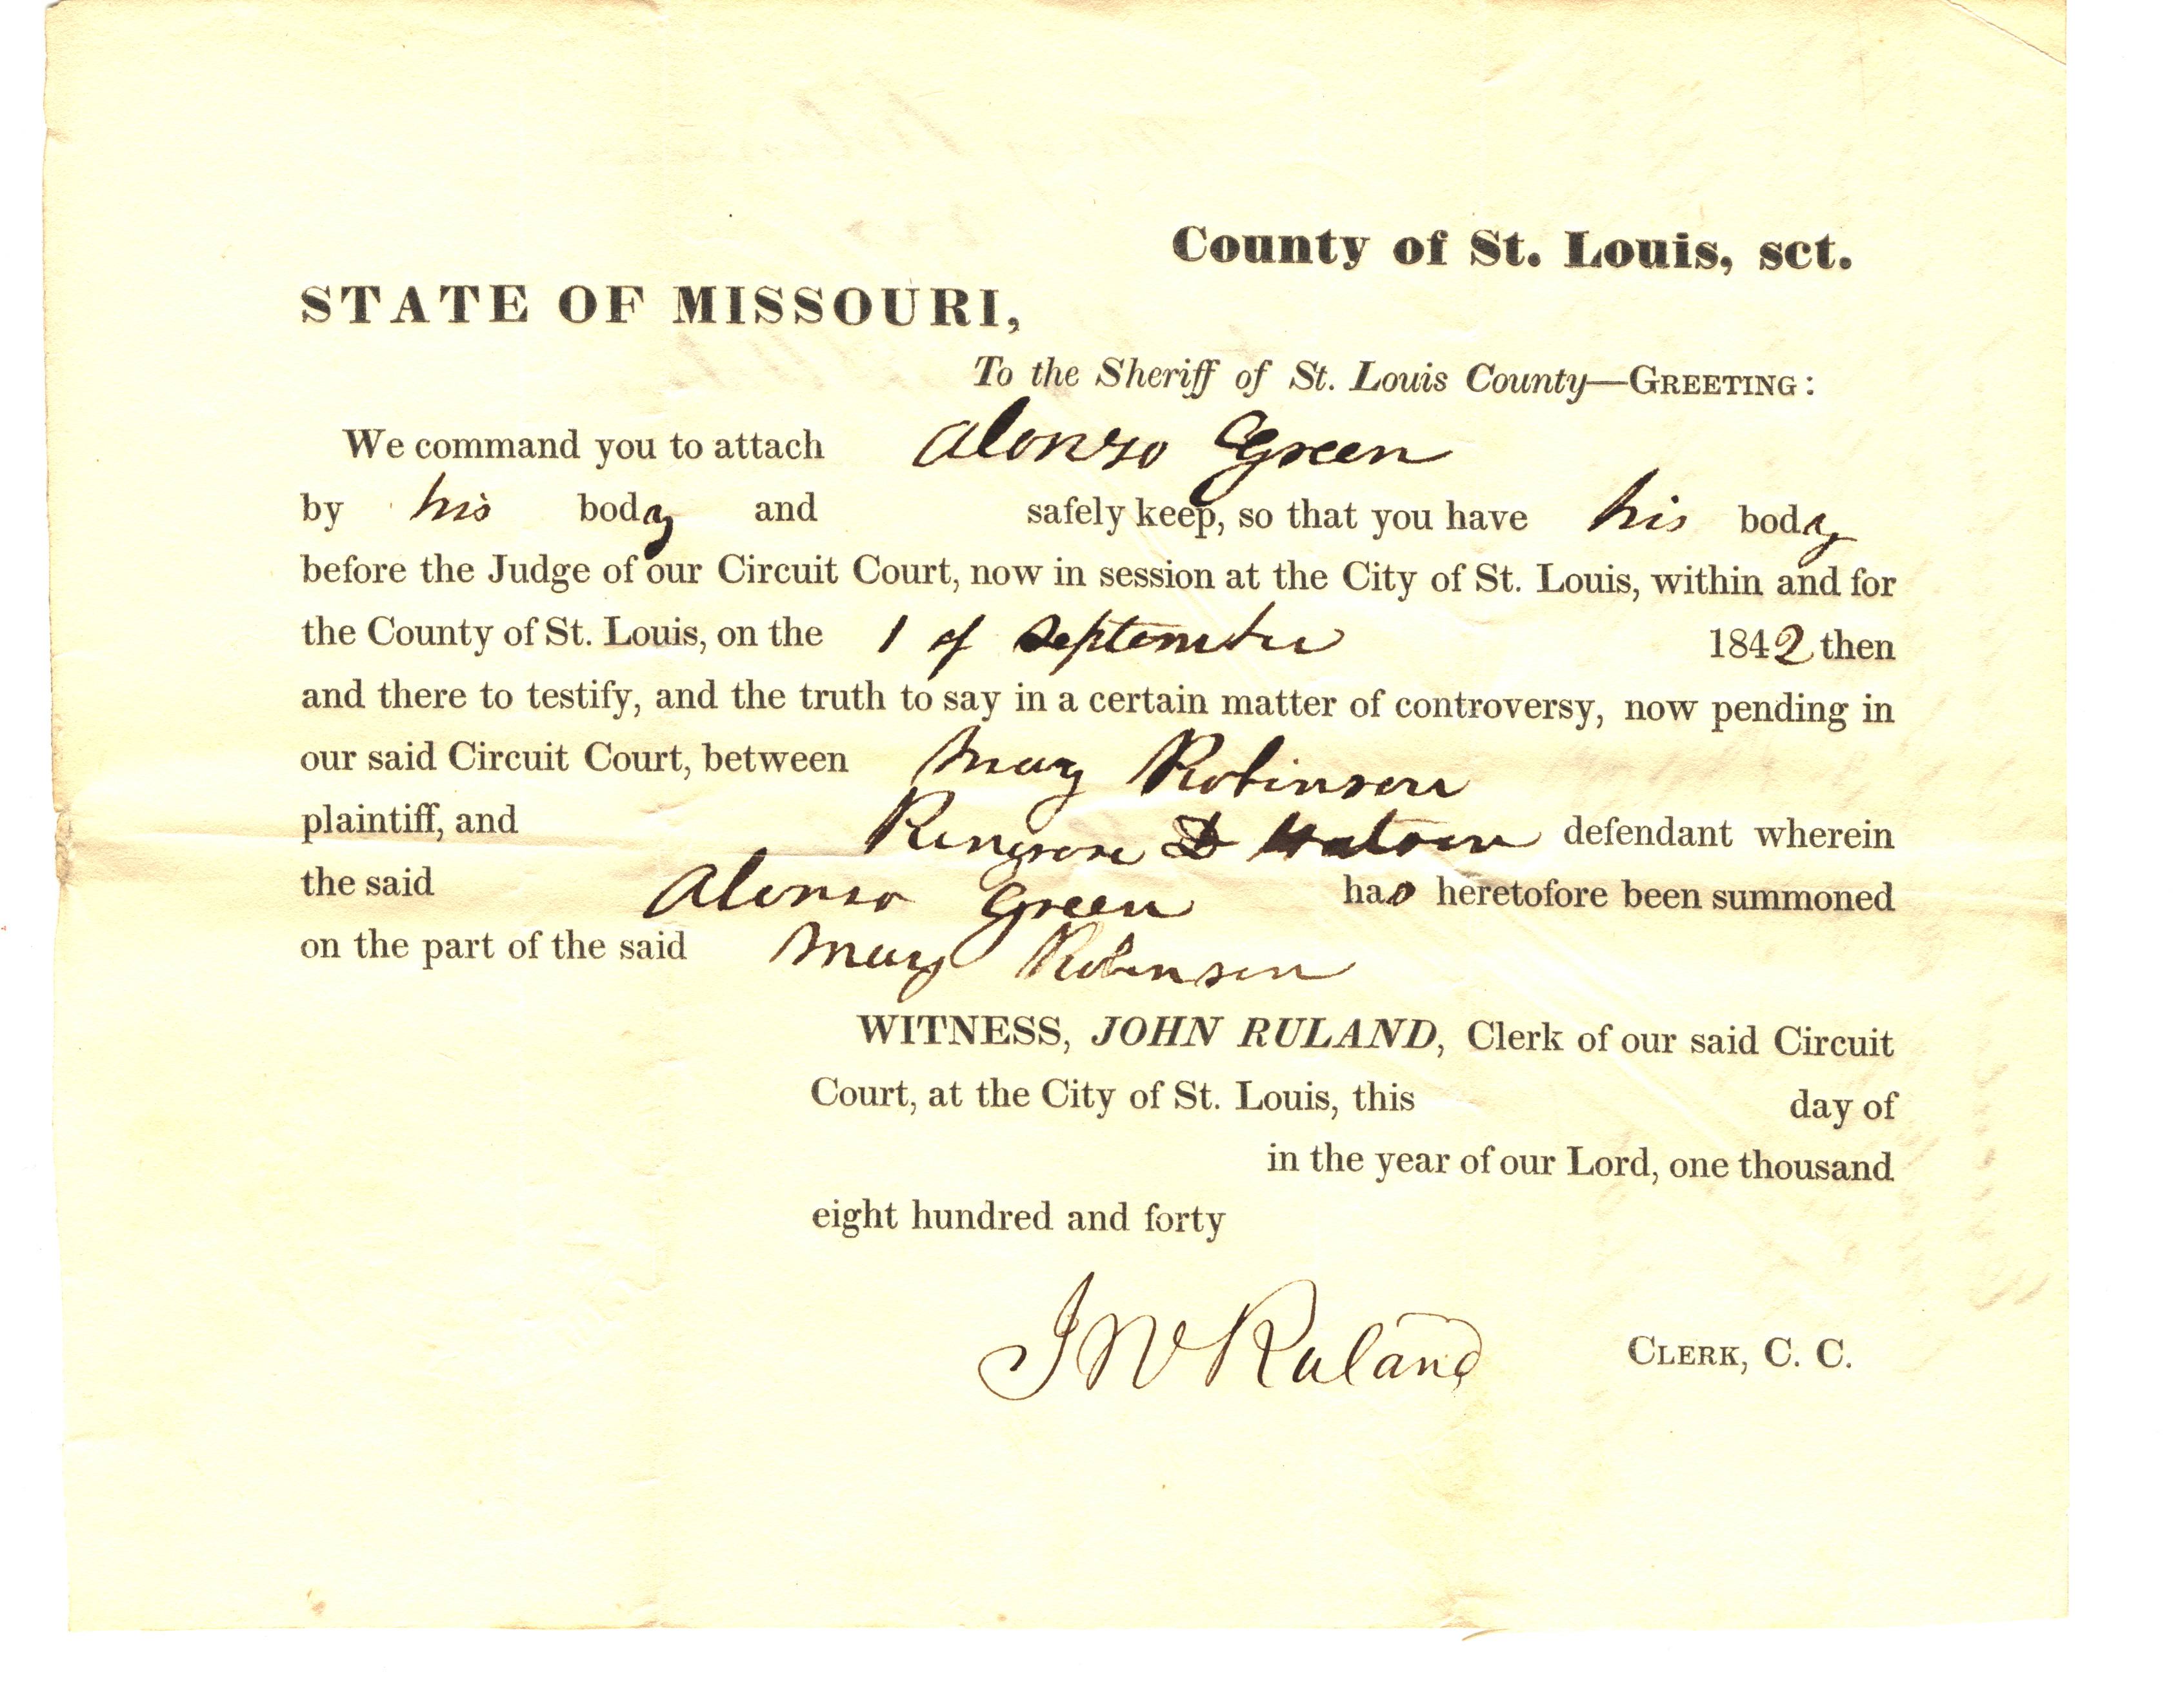 County of St. Louis, sct.
STATE OF MISSOURI,
To the Sheriff of St. Louis County—GREETING:
We command you to attach Alonzo Green
by his body and safely keep, so that you have his body
before the Judge of our Circuit Court, now in session at the City of St. Louis, within and for
the County of St. Louis, on the 1 of September 1842 then
and there to testify, and the truth to say in a certain matter of controversy, now pending in
our said Circuit Court, between Mary Robinson
plaintiff, and Ringrose D Watson defendant wherein
the said Alonso Green has heretofore been summoned
on the part of the said Mary Robinson
WITNESS, JOHN RULAND, Clerk of our said Circuit
Court, at the City of St. Louis, this day of
in the year of our Lord, one thousand
eight hundred and forty
J W Ruland CLERK, C. C.